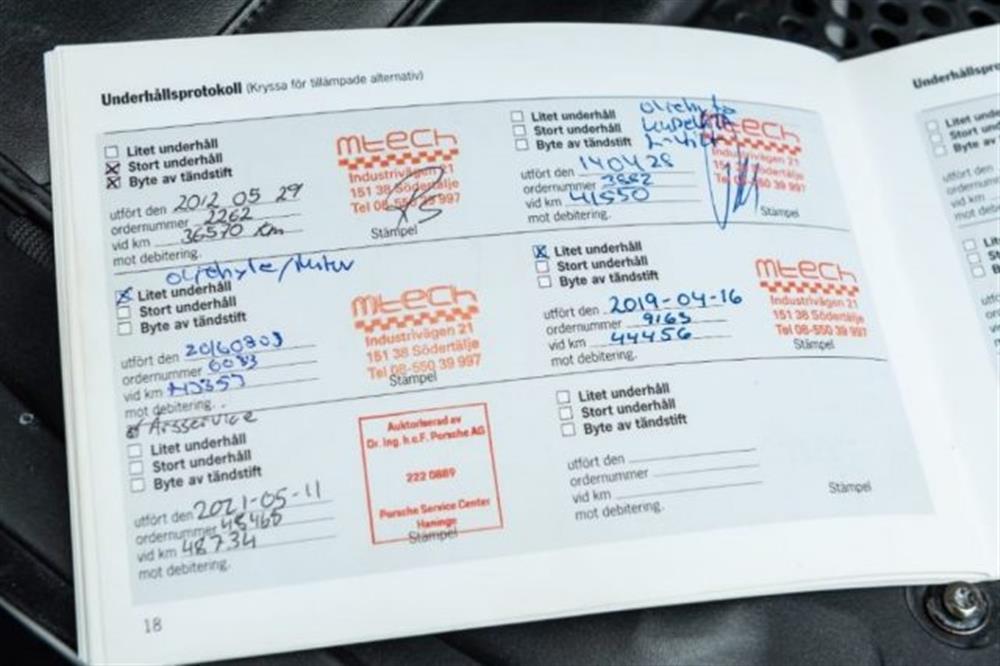 Underhållsprotokoll (Kryssa för tillämpade alternativ)
Litet underhåll
Stort underhåll
Byte av tändstift
utfört den 2012 05 29
ordernummer 2262
vid km 36570 Km
mot debitering.
mtech
Industrivägen 21
151 38 Södertälje
Tel 08-550 39 997
Stämpel
oljebyte
Litet underhåll
Stort underhåll
Byte av tändstift
utfört den 140428
ordernummer 3882
vid km 41550
mot debitering.
mtech
Industrivägen 21
151 38 Södertälje
Tel 08-550 39 997
Stämpel
oljebyte/
Litet underhåll
Stort underhåll
Byte av tändstift
utfört den
ordernummer
vid km
mot debitering.
mtech
Industrivägen 21
151 38 Södertälje
Tel 08-550 39 997
Stämpel
Litet underhåll
Stort underhåll
Byte av tändstift
utfört den 2019-04-16
ordernummer 9163
vid km 44456
mot debitering.
mtech
Industrivägen 21
151 38 Södertälje
Tel 08-550 39 997
Stämpel
Årsservice
Litet underhåll
Stort underhåll
Byte av tändstift
utfört den 2021-05-11
ordernummer 48465
vid km 48734
mot debitering.
Auktoriserad av
Dr. Ing. h.c.F. Porsche AG
222 0889
Porsche Service Center
Haninge
Stämpel
Litet underhåll
Stort underhåll
Byte av tändstift
utfört den
ordernummer
vid km
mot debitering.
Stämpel
18
Underhållspro